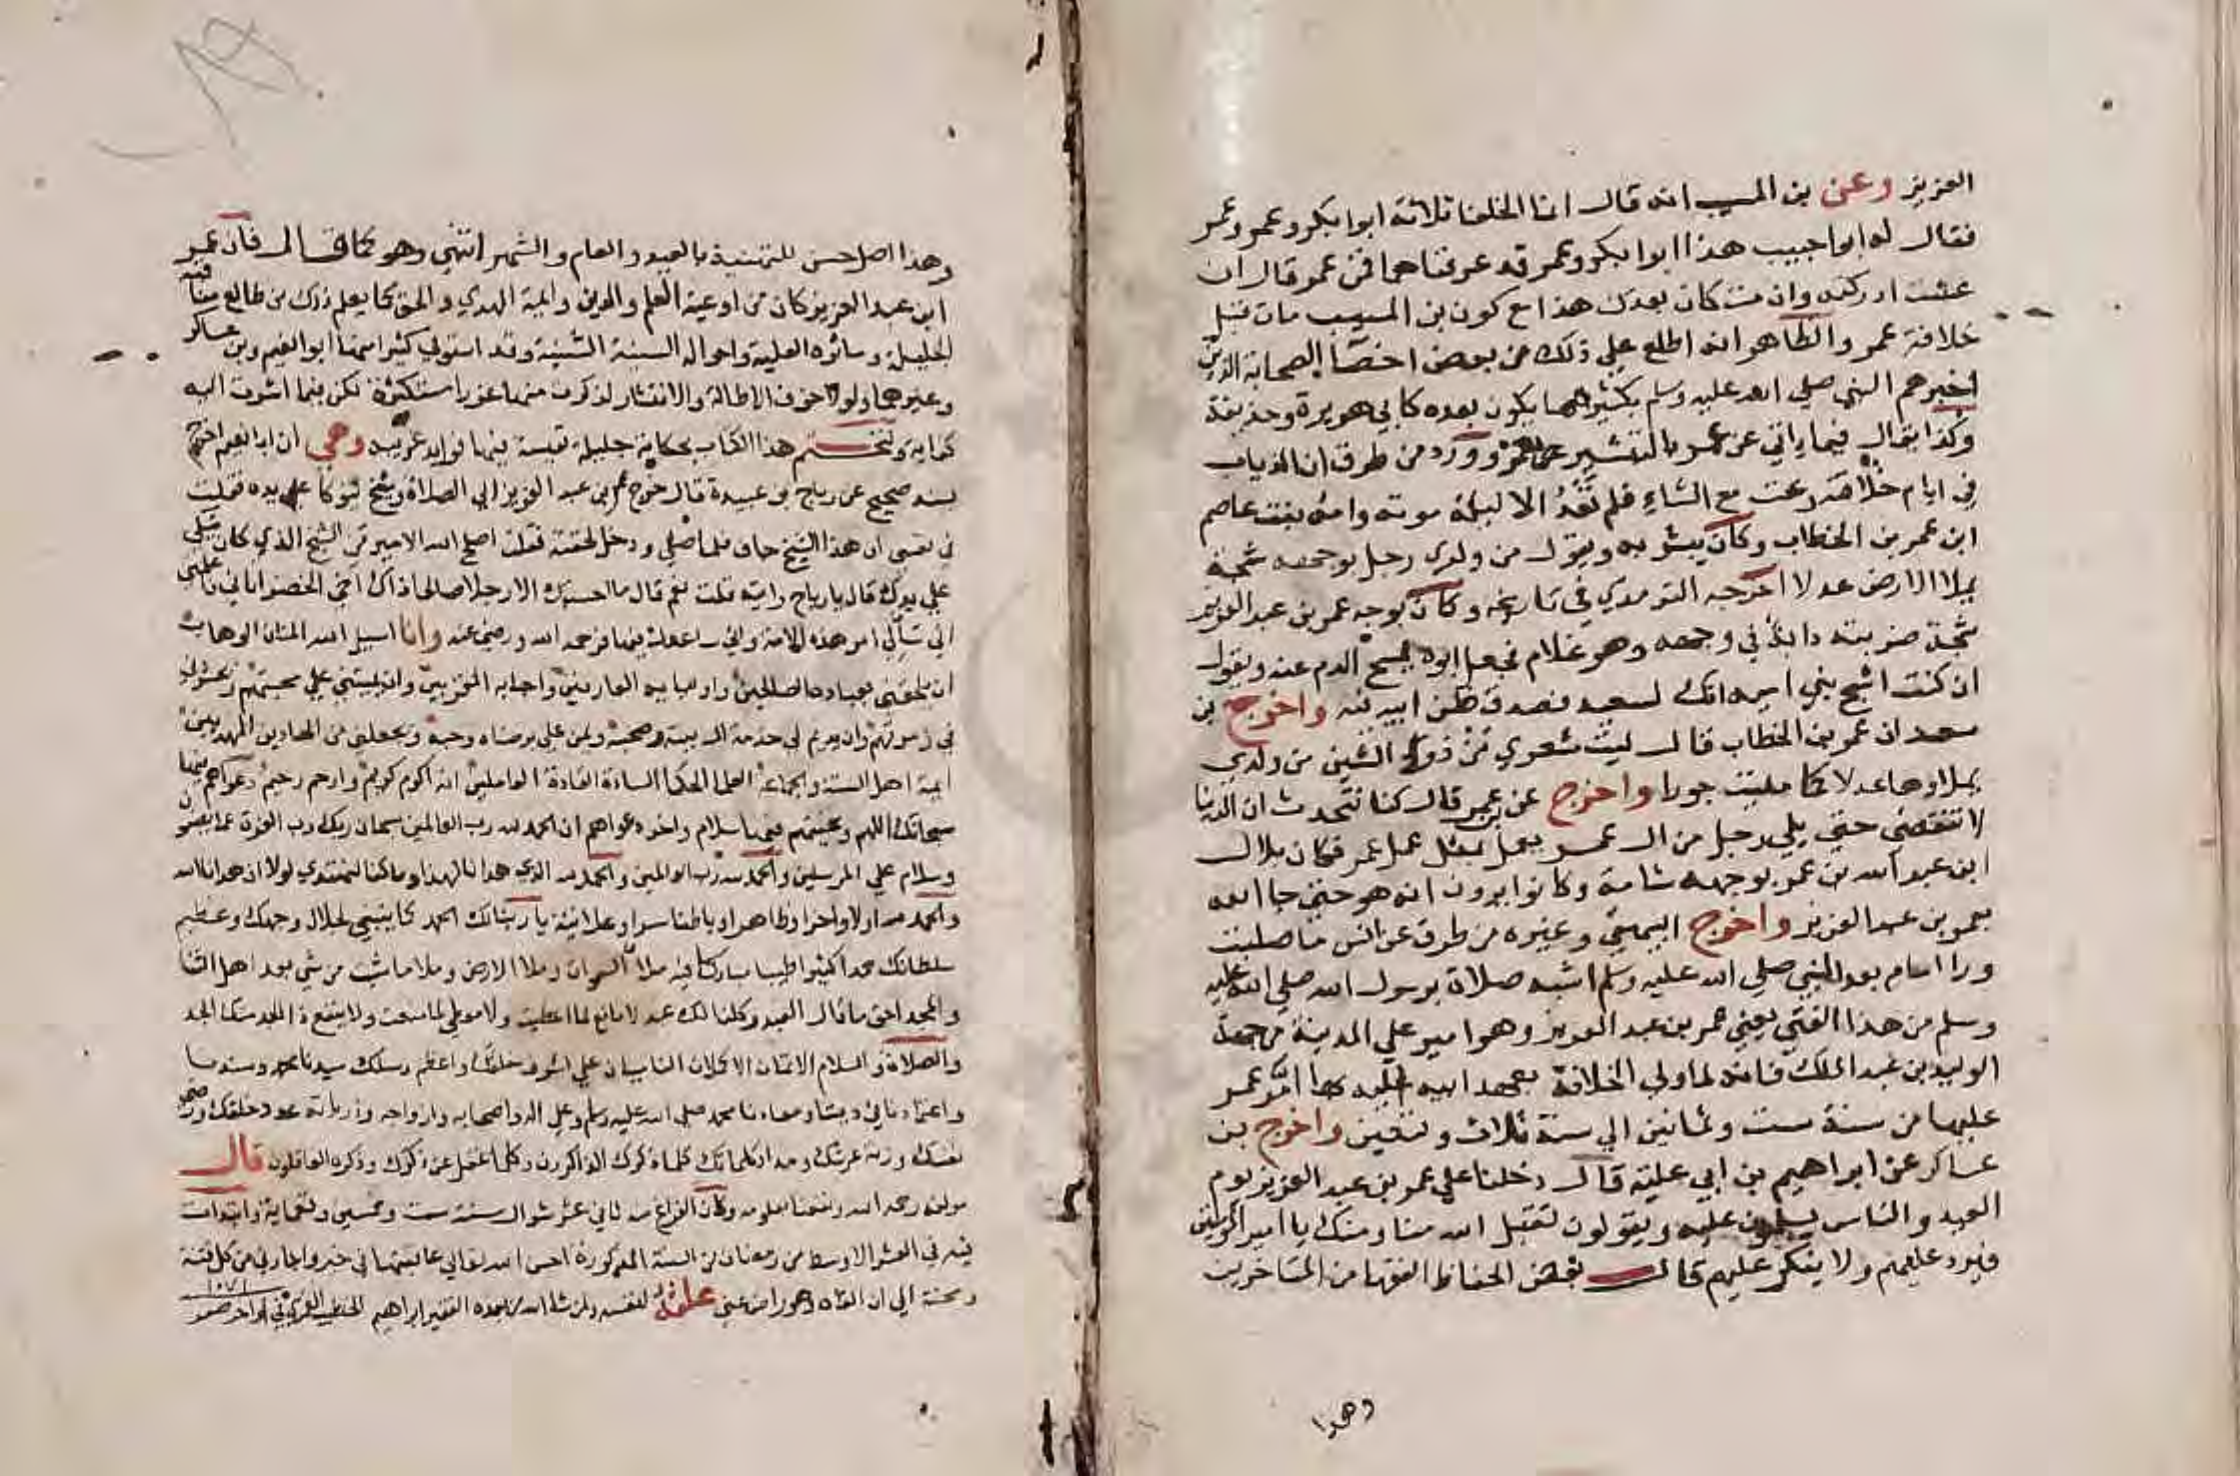 العزيز وعن بن المسيب انه قال انما الخلفا ثلاثة ابوا بكر وعمر وعمر
فقال له ابوا حبيب هذا ابوا بكر وعمر قد عرفناهما فمن عمر قال ان
عشت ادركته وان مت كان بعدك هذا مع كون بن المسيب مات قبل
خلافة عمر والظاهر انه اطلع علي ذلك من بعض اخصا الصحابة الذين
اخبرهم النبي صلي الله عليه وسلم بكثير مما يكون بعده كابي هريرة وحذيفة
وكذا يقال فيما ياتي عن عمر بالتبشير وورد من طرق ان الذياب
في ايام خلافته رعت مع الشاء فلم تعد الا ليلة موته وامه بنت عاصم
ابن عمر بن الخطاب وكان يبشر به ويقول من ولدي رجل بوجهه شجة
يملا الارض عدلا اخرجه الترمذي في تاريخه وكان بوجه عمر بن عبد العزيز
شجة ضربته دابة في وجهه وهو غلام فجعل ابوه يمسح الدم عنه ويقول
ان كنت اشج بني امية انك لسعيد فصدق ظن ابيه فيه واخرج بن
سعد ان عمر بن الخطاب قال ليت شعوري من ذو الشين من ولدي
يملاوها عدلا كما مليت جورا واخرج عن بن عمر قال كنا نتحدث ان الدنيا
لا تنقضي حتي يلي رجل من ال عمر يعمل بمثل عمل عمر فكان بلال
ابن عبد الله بن عمر بوجهه شامة وكانوا يرون انه هو حتي جا الله
بعمر بن عبد العزيز واخرج البيهقي وغيره من طرق عن انس ما صليت
ورا امام بعد النبي صلي الله عليه وسلم اشبه صلاة برسول الله صلي الله عليه
وسلم من هذا الفتي يعني عمر بن عبد العزيز وهو امير علي المدينة من جهة
الوليد بن عبد الملك فانه لما ولي الخلافة بعهد ابيه اليه بها امر عمر
عليها من سنة ست وثمانين الي سنة ثلاث وتسعين واخرج بن
عساكر عن ابراهيم بن ابي علية قال دخلنا علي عمر بن عبد العزيز يوم
العيد والناس يسلمون عليه ويقولون تقبل الله منا ومنك يا امير المومنين
فيرد عليهم ولا ينكر عليهم قال بعض الحفاظ الفقها من المتاخرين
وهذا
وهذا اصل حسن للتهنية بالعيد والعام والشهر انتهي وهو كما قال فان عمر
ابن عبد العزيز كان من اوعية العلم والدين وايمة الهدي والحق كما يعلم ذلك من طالع مناقبه
الجليلة وماثره العلية واحواله السنية وقد استوفي كثيرا منها ابوا نعيم وبن عساكر
وغيرهما ولولا خوف الاطالة والانتشار لذكرت منها غررا مستكثرة لكن فيما اشرت اليه
كفاية ولنختم هذا الكتاب بحكاية جليلة نفيسة فيها فوايد غريبة وهي ان ابا نعيم اخرج
بسند صحيح عن رياح بن عبيدة قال خرج عمر بن عبد العزيز الي الصلاة وشيخ يتوكا علي يده فقلت
في نفسي ان هذا الشيخ جاف فلما صلي ودخل لحقته فقلت اصلح الله الامير من الشيخ الذي كان يتكي
علي يدك قال يا رياح رايته قلت نعم قال ما احسبك الا رجلا صالحا ذاك اخي الخضر اتاني فاعلمني
اني سالي امر هذه الامة واني ساعدل فيها فرحمه الله ورضي عنه وانا اسيل الله المنان الوهاب
ان يلحقني بعباده الصالحين واوليايه العارفين واحبابه المقربين وان يميتني علي محبتهم ويحشرني
في زمرتهم وان يديم لي خدمة ال بيته وصحبه ويمن علي برضاه وحبه ويجعلني من الهادين المهديين
ايمة اهل السنة والجماعة العلما الحكما السادة القادة العاملين انه اكرم كريم وارحم رحيم دعواهم فيها
سبحانك اللهم وتحيتهم فيها سلام واخر دعواهم ان الحمد لله رب العالمين سبحان ربك رب العزة عما يصفون
وسلام علي المرسلين والحمد لله رب العالمين والحمد لله الذي هدانا لهذا وما كنا لنهتدي لولا ان هدانا الله
والحمد لله اولا واخرا وظاهرا وباطنا سرا وعلانية يا ربنا لك الحمد كما ينبغي لجلال وجهك وعظيم
سلطانك حمدا كثيرا طيبا مباركا فيه ملا السموات وملا الارض وملا ما شيت من شي بعد اهل الثنا
والمجد احق ما قال العبد وكلنا لك عبد لا مانع لما اعطيت ولا معطي لما منعت ولا ينفع ذا الجد منك الجد
والصلاة والسلام الاتمان الاكملان علي اشرف خلقك واعظم رسلك سيدنا محمد
محمد صلي الله عليه وسلم وعلي اله واصحابه وازواجه وذرياته عدد خلقك ورضي
نفسك وزنة عرشك ومداد كلماتك كلما ذكرك الذاكرون وكلما غفل عن ذكرك وذكره الغافلون قال
مولفه رحمه الله ونفعنا بعلومه وكان الفراغ منه ثاني عشر شوال سنة ست وخمسين وتسعماية وابتدات
فيه في العشر الاوسط من رمضان من السنة المذكورة احسن الله تعالي عاقبتها في خير واجارني من كل فتنة
ومحنة الي ان القاه وهو راض عني علقه لنفسه ولمن شاء الله من بعده الفقير ابراهيم الخطيب
١٠٧١